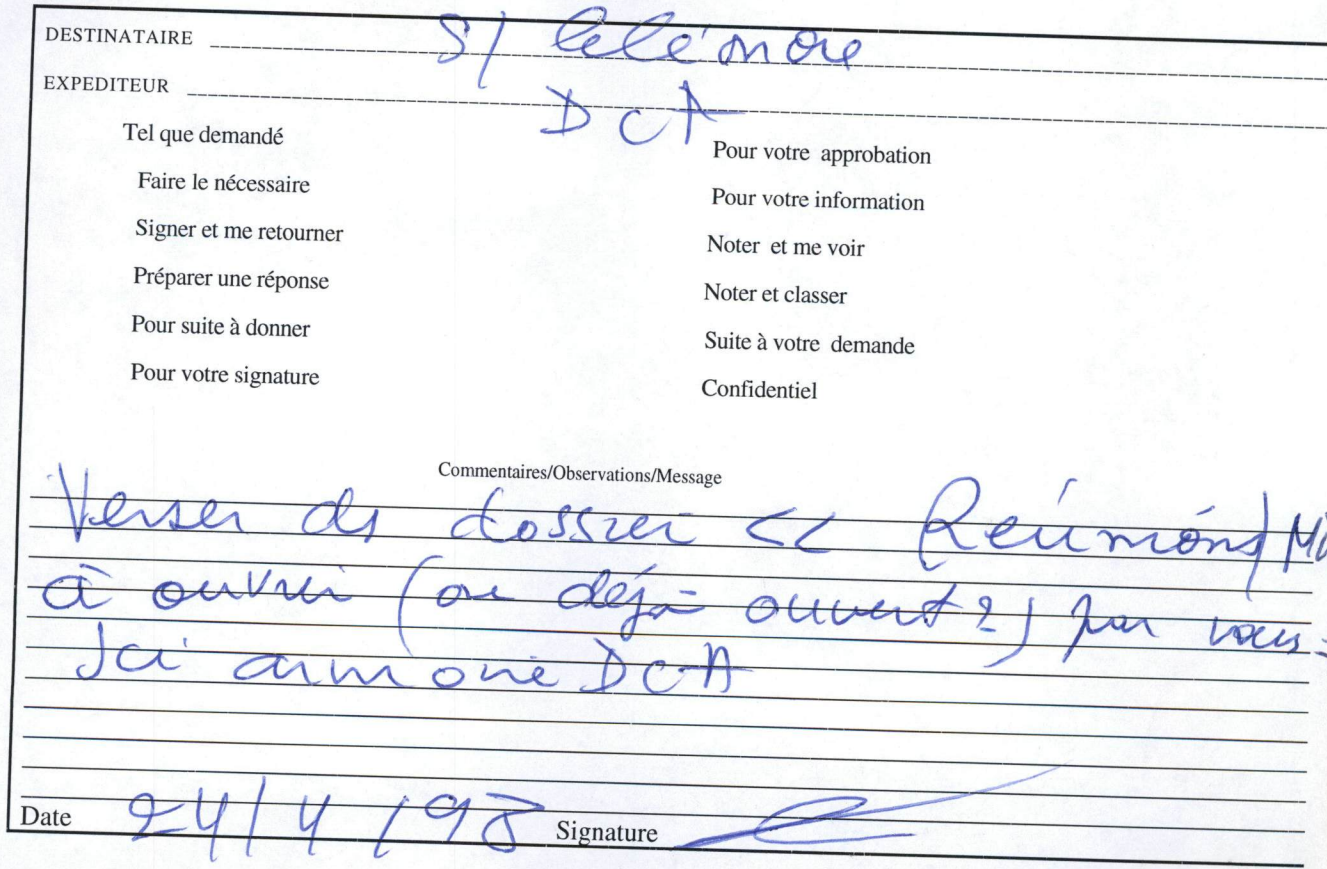 DESTINATAIRE S/
EXPEDITEUR DCA
Tel que demandé
Faire le nécessaire
Signer et me retourner
Préparer une réponse
Pour suite à donner
Pour votre signature
Pour votre approbation
Pour votre information
Noter et me voir
Noter et classer
Suite à votre demande
Confidentiel
Commentaires/Observations/Message
Verser ds dossier << Réunions/
à ouvrir (ou déjà ouvert ?) par vous
ici armoire DCA
Date 24/4/98 Signature